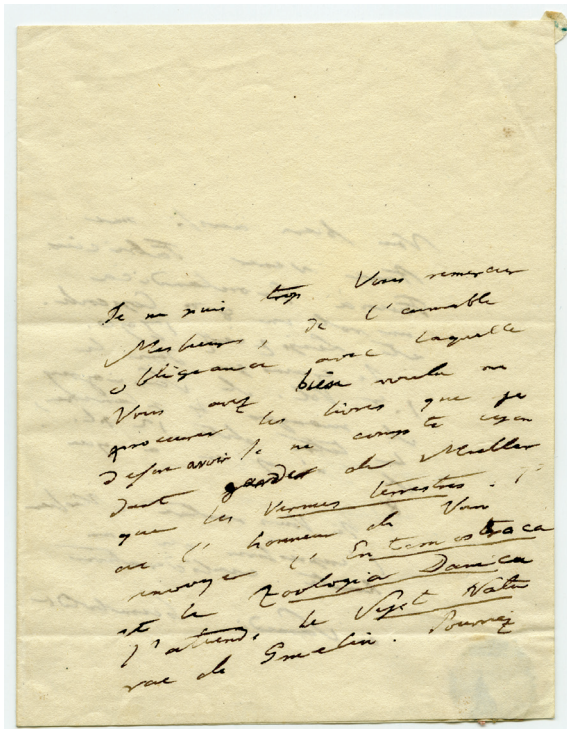 Je ne puis trop Vous remercier
Messieurs, de l'aimable
obligeance avec laquelle
Vous avez bien voulu me
procurer les livres que je
desire avoir Je ne compte
dant garder de Mueller
que les Vermes terrestres. J'
ai l'honneur de Vous
renvoyer l'Entomostraca
et le Zoologia Danica
J'attends le Syst Natu
rae de Gmelin. Pourriez